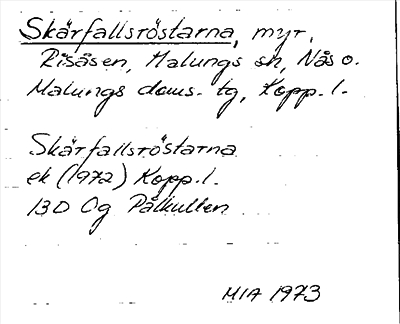 Skärfallsröstarna, myr,
Risåsen, Malungs sn, Nås o.
Malungs doms. tg, Kopp. l.
Skärfallsröstarna
ek (1972) Kopp. l.
13D 0g Pålkullen
MIA 1973